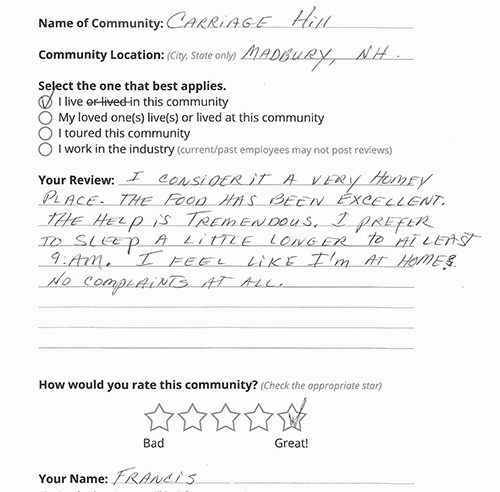 Name of Community: CARRIAGE Hill
Community Location: (City, State only) MADBURY, NH.
Select the one that best applies.
I live or lived in this community
My loved one(s) live(s) or lived at this community
I toured this community
I work in the industry (current/past employees may not post reviews)
Your Review: I CONSIDER IT A VERY HOMEY
PLACE. THE FOOD HAS BEEN EXCELLENT.
THE HELP iS TREMENDOUS. I PREFER
TO SLEEP A LITTLE LONGER to AT LEAST
9:AM. I FEEL LIKE I'm AT HOME.
NO COMPLAINTS AT ALL.
How would you rate this community? (Check the appropriate star)
Bad Great!
Your Name: FRANCIS